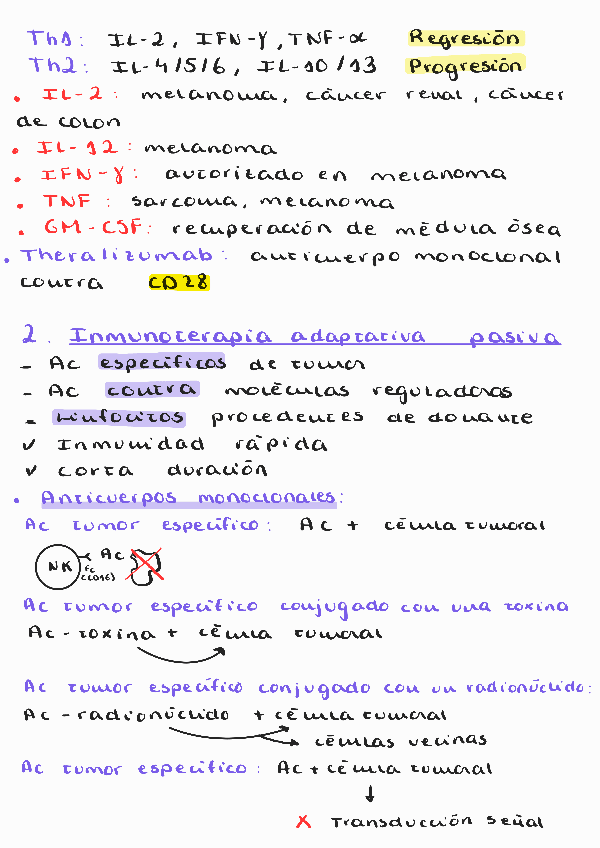 Th1: IL-2, IFN-γ, TNF-α Regresión
Th2: IL-4/5/6, IL-10/13 Progresión
• IL-2: melanoma, cáncer renal, cáncer
de colon
• IL-12: melanoma
• IFN-γ: autorizado en melanoma
• TNF: sarcoma, melanoma
• GM-CSF: recuperación de médula ósea
• Theralizumab: anticuerpo monoclonal
contra CD28
2. Inmunoterapia adaptativa pasiva
- Ac específicos de tumor
- Ac contra moléculas reguladoras
- Linfocitos procedentes de donante
✓ Inmunidad rápida
✓ corta duración
• Anticuerpos monoclonales:
Ac tumor específico: Ac + célula tumoral
NK Ac
Fc
(CD16)
Ac tumor específico conjugado con una toxina
Ac-toxina + célula tumoral
Ac tumor específico conjugado con un radionúclido:
Ac-radionúclido + célula tumoral
células vecinas
Ac tumor específico: Ac + célula tumoral
↓
X Transducción señal